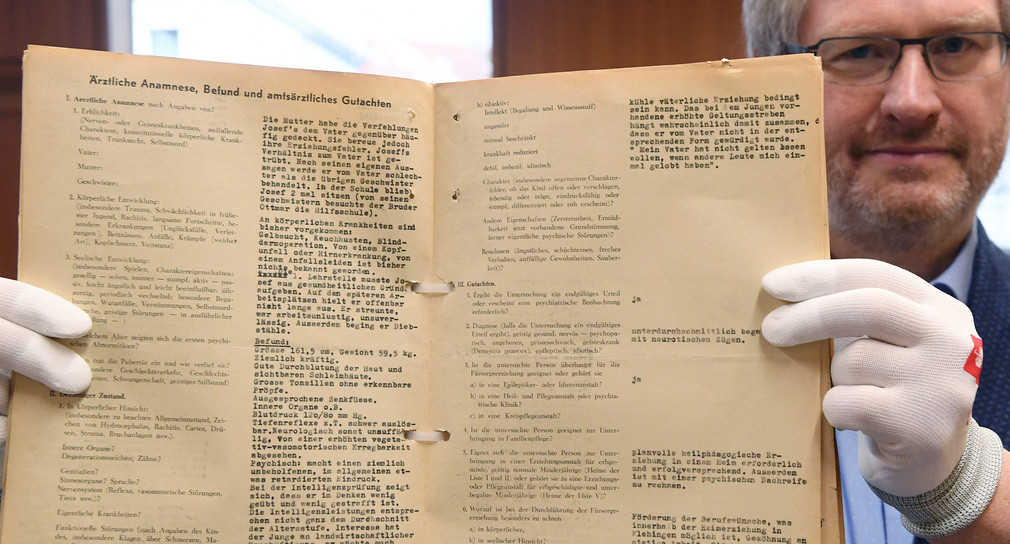 Ärztliche Anamnese, Befund und amtsärztliches Gutachten
I. Aerztliche Anamnese nach Angaben von?
1. Erblichkeit:
(Nerven- oder Geisteskrankheiten, auffallende
Charaktere, konstitutionelle körperliche Krank-
heiten, Trunksucht, Selbstmord)
Vater:
Mutter:
Geschwister:
2. Körperliche Entwicklung:
(insbesondere Trauma, Schwächlichkeit in frühe-
ster Jugend, Rachitis, langsame Fortschritte, be-
sondere Erkrankungen [Unglücksfälle, Verlet-
zungen], Bettnässen, Anfälle, Krämpfe (welcher
Art), Kopfschmerz, Veitstanz)
3. Seelische Entwicklung:
(insbesondere Spielen, Charaktereigenschaften:
gesellig — scheu, munter — stumpf, aktiv — pas-
siv, leicht ängstlich und leicht beeinflußbar,
periodisch wechselnd; besondere Bega-
Wutanfälle, Verstimmungen, Selbstmord-
geistige Störungen — in ausführlicher
Alter zeigten sich die ersten psychi-
schen Abnormitäten?
trat die Pubertät ein und wie verlief sie?
Geschlechtsverkehr, Geschlechts-
Schwangerschaft, geistiger Stillstand)
II. Derzeitiger Zustand.
1. In körperlicher Hinsicht:
(insbesondere zu beachten Allgemeinzustand, Zei-
chen von Hydrocephalus, Rachitis, Caries, Drü-
sen, Struma, Bruchanlagen usw.).
Innere Organe?
Degenerationszeichen, Zähne?
Genitalien?
Sinnesorgane? Sprache?
Nervensystem (Reflexe, vasomotorische Störungen,
Tics usw.)?
Eigentliche Krankheiten?
Funktionelle Störungen (nach Angaben des Kin-
des, insbesondere Klagen über Schmerzen, Ma-
Die Mutter habe die Verfehlungen
Josef's dem Vater gegenüber häu-
fig gedeckt. Sie bereue jedoch
ihre Erziehungsfehler. Josefs
Verhältnis zum Vater ist ge-
trübt. Nach seinen eigenen Aus-
sagen werde er vom Vater schlech-
ter als die übrigen Geschwister
behandelt. In der Schule blieb
Josef 2 mal sitzen (von seinen
Geschwistern besuchte der Bruder
Ottmar die Hilfsschule).
An körperlichen Krankheiten sind
bisher vorgekommen:
Gelbsucht, Keuchhusten, Blind-
darmoperation. Von einem Kopf-
unfall oder Hirnerkrankung, von
einem Anfallsleiden ist bisher
nichts bekannt geworden.
1. Lehrstelle musste Jo-
sef aus gesundheitlichen Gründen
aufgeben. Auf den späteren Ar-
beitsplätzen hielt er offenbar
nicht lange aus. Er streunte,
war arbeitsunlustig, unzuver-
lässig. Ausserdem beging er Dieb-
stähle.
Befund:
Grösse 161,5 cm, Gewicht 59,5 kg.
Ziemlich kräftig.
Gute Durchblutung der Haut und
sichtbaren Schleimhäute.
Grosse Tonsillen ohne erkennbare
Pröpfe.
Ausgesprochene Senkfüsse.
Innere Organe o.B.
Blutdruck 120/80 mm Hg.
Tiefenreflexe z.T. schwer auslös-
bar. Neurologisch sonst unauffäl-
lig, von einer erhöhten vegeta-
tiv-vasomotorischen Erregbarkeit
abgesehen.
Psychisch: macht einen ziemlich
unbeholfenen, im allgemeinen et-
was retardierten Eindruck.
Bei der Intelligenzprüfung zeigt
sich, dass er im Denken wenig
geübt und wenig gestrafft ist.
Die Intelligenzleistungen entspre-
chen nicht ganz dem Durchschnitt
der Altersstufe. Interesse hat
der Junge an landwirtschaftlicher
b) objektiv:
Intellekt (Begabung und Wissensstoff)
ungestört
normal beschränkt
krankhaft reduziert
debil, imbezil, idiotisch
Charakter (insbesondere sogenannte Charakter-
fehler, ob das Kind offen oder verschlagen,
lebendig oder träge, eindrucksfähig oder
stumpf, differenziert oder roh erscheint)?
Andere Eigenschaften (Zerstreutheit, Ermüd-
barkeit jetzt vorhandene Grundstimmung,
ferner eigentliche psychische Störungen)?
Benehmen (ängstliches, schüchternes, freches
Verhalten, auffällige Gewohnheiten, Sauber-
keit)?
kühle väterliche Erziehung bedingt
sein kann. Das bei dem Jungen vor-
handene erhöhte Geltungsstreben
hängt wahrscheinlich damit zusammen, d
dass er vom Vater nicht in der ent-
sprechenden Form gewürdigt wurde.
" Mein Vater hat nicht gelten lassen
wollen, wenn andere Leute mich ein-
mal gelobt haben".
III. Gutachten.
1. Ergibt die Untersuchung ein endgültiges Urteil
oder erscheint eine psychiatrische Beobachtung
erforderlich?
ja
2. Diagnose (falls die Untersuchung ein endgültiges
Urteil ergibt), geistig gesund, nervös — psychopa-
tisch, angeboren, geistesschwach, geisteskrank
(Dementia praecox), epileptisch, idiotisch?
unterdurchschnittlich bega
mit neurotischen Zügen.
3. Ist die untersuchte Person überhaupt für die
Fürsorgeerziehung geeignet oder gehört sie
a) in eine Epileptiker- oder Idiotenanstalt?
b) in eine Heil- und Pflegeanstalt oder psychia-
trische Klinik?
c) in eine Kreispflegeanstalt?
ja
4. Ist die untersuchte Person geeignet zur Unter-
bringung in Familienpflege?
5. Eignet sich die untersuchte Person zur Unter-
bringung in einer Erziehungsanstalt für erbge-
sunde, geistig normale Minderjährige (Heime der
Liste I und II), oder gehört sie in eine Erziehungs-
oder Pflegeanstalt für erbgeschädigte und unter-
begabte Minderjährige (Heime der Liste V)?
planvolle heilpädagogische Er-
ziehung in einem Heim erforderlich
und erfolgversprechend. Ausserdem
ist mit einer psychischen Nachreife
zu rechnen.
6. Worauf ist bei der Durchführung der Fürsorge-
erziehung besonders zu achten
a) in körperlicher,
b) in seelischer Hinsicht?
Förderung der Berufswünsche, was
innerhalb der Heimerziehung in
Flehingen möglich ist, Gewöhnung an